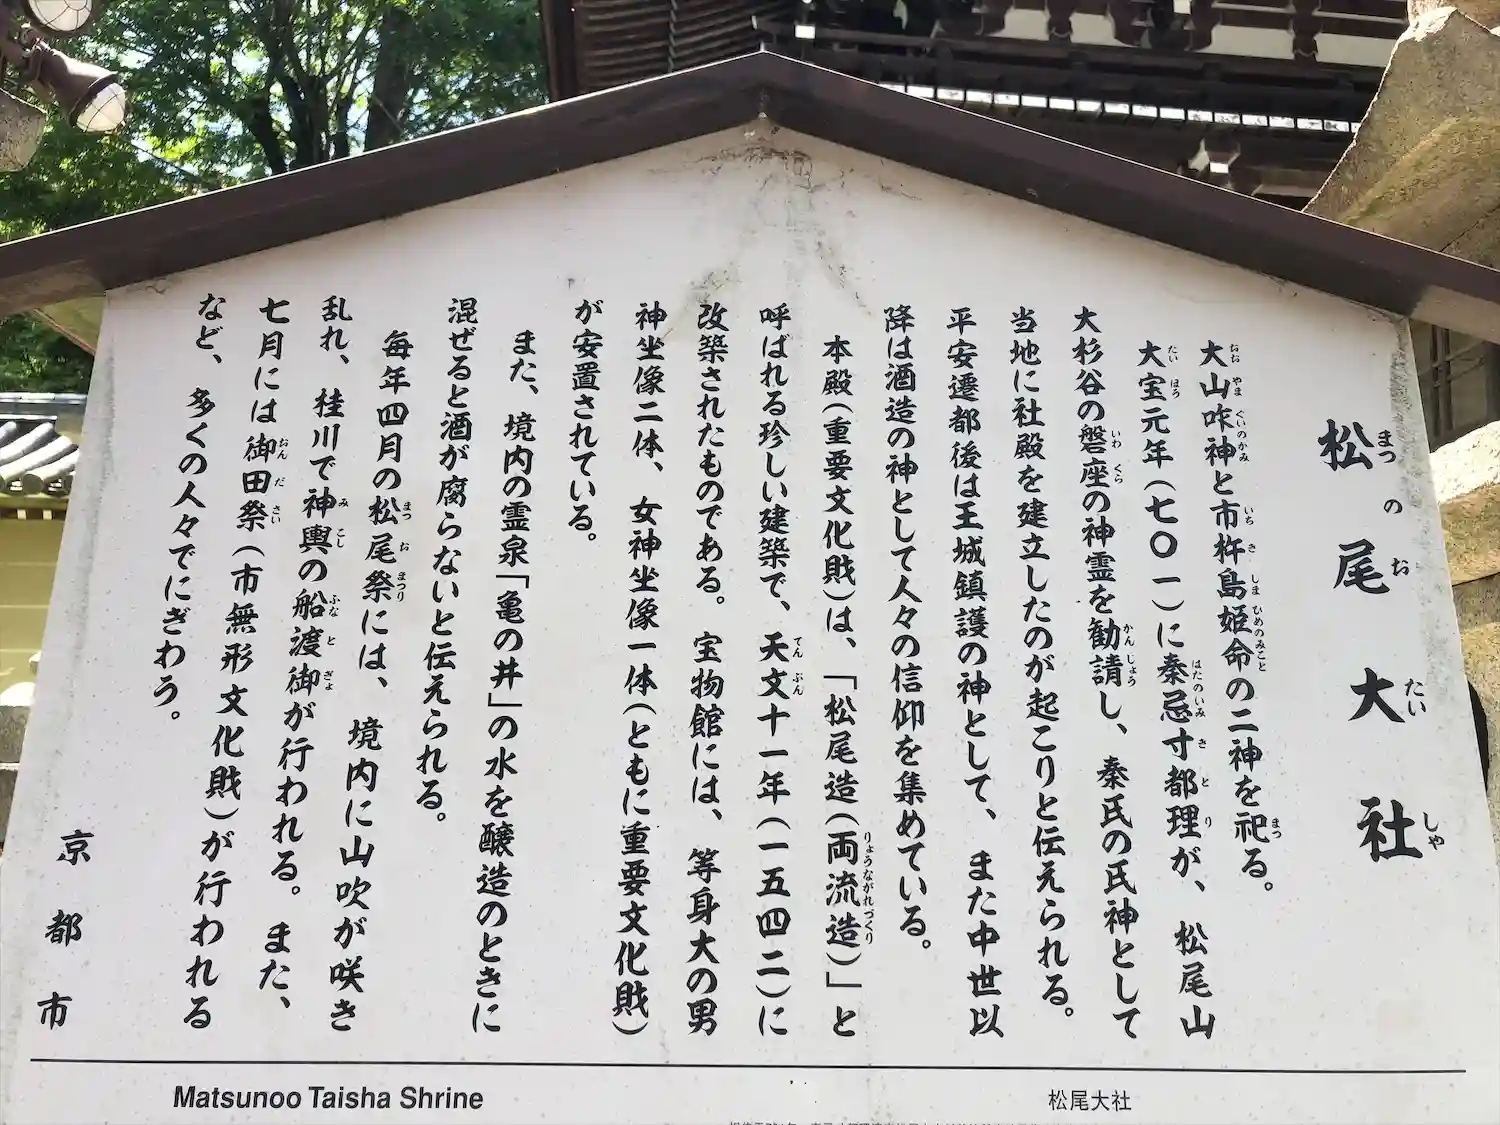 松尾大社
大山咋神と市杵島姫命の二神を祀る。
大宝元年(七〇一)に秦忌寸都理が、松尾山
大杉谷の磐座の神霊を勧請し、秦氏の氏神として
当地に社殿を建立したのが起こりと伝えられる。
平安遷都後は王城鎮護の神として、また中世以
降は酒造の神として人々の信仰を集めている。
本殿(重要文化財)は、「松尾造(両流造)」と
呼ばれる珍しい建築で、天文十一年(一五四二)に
改築されたものである。宝物館には、等身大の男
神坐像二体、女神坐像一体(ともに重要文化財)
が安置されている。
また、境内の霊泉「亀の井」の水を醸造のときに
混ぜると酒が腐らないと伝えられる。
毎年四月の松尾祭には、境内に山吹が咲き
乱れ、桂川で神輿の船渡御が行われる。また、
七月には御田祭(市無形文化財)が行われる
など、多くの人々でにぎわう。
京都市
Matsunoo Taisha Shrine
松尾大社